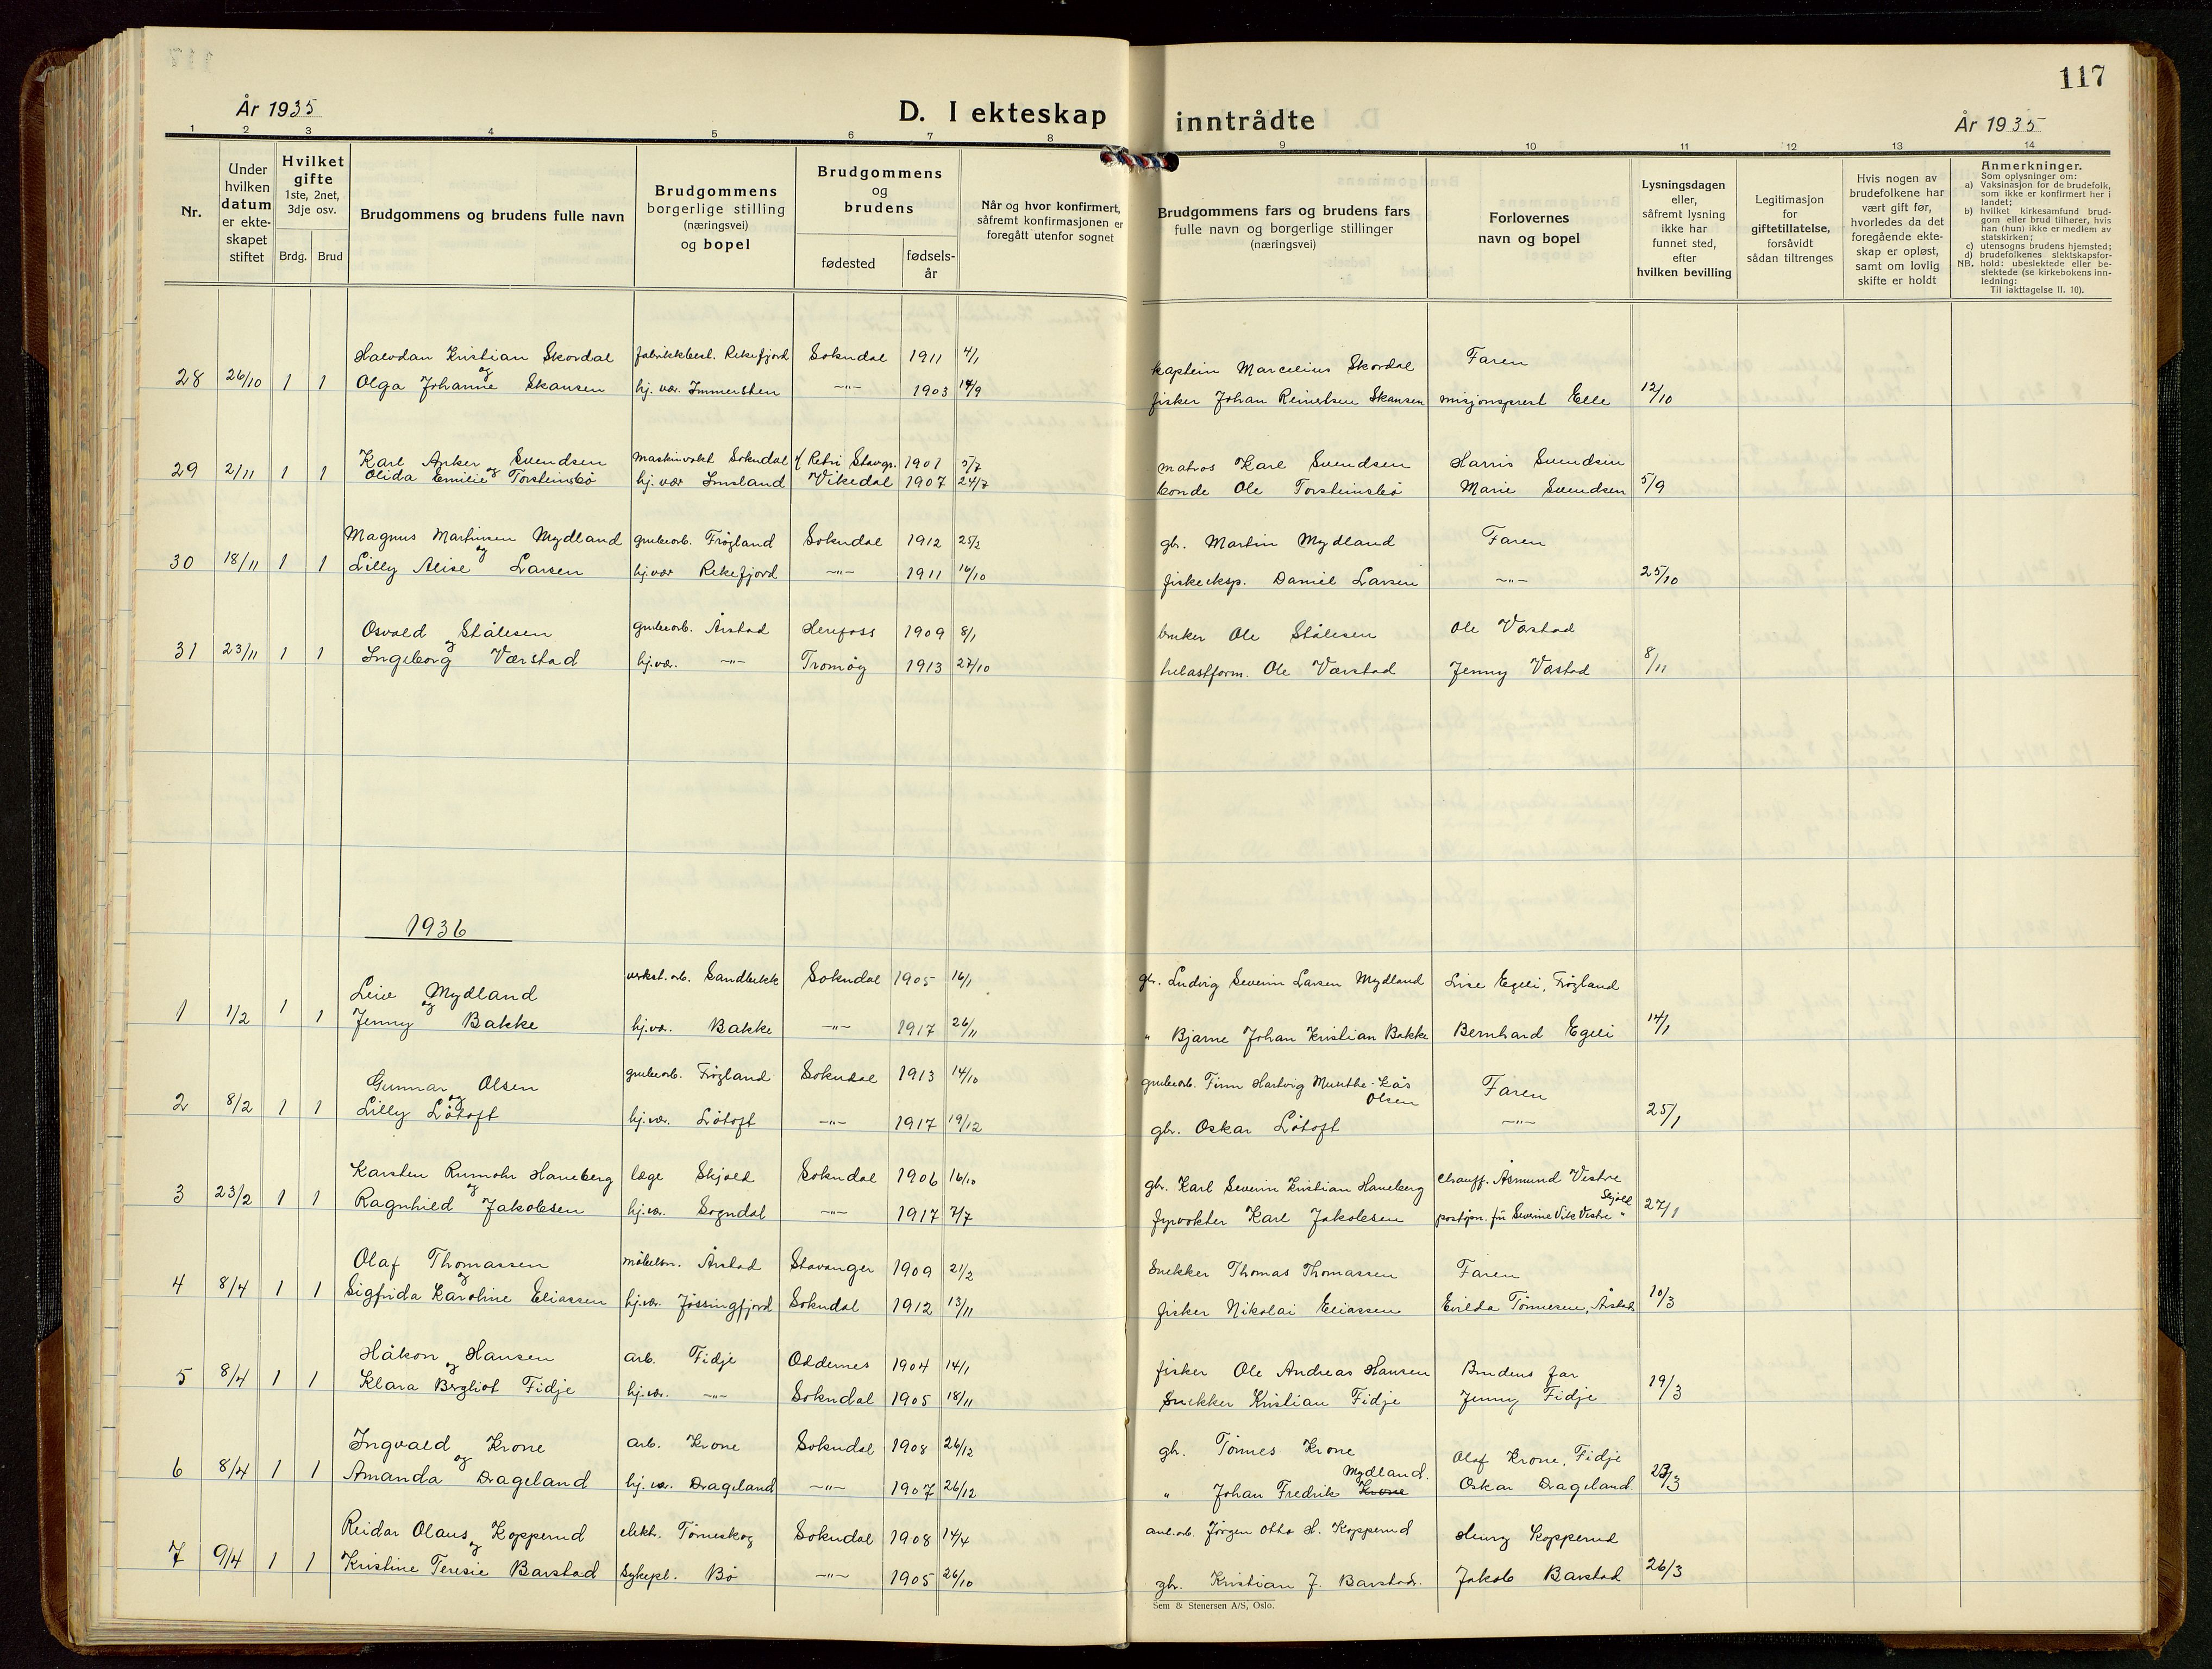 117
År 1935
D. I ekteskap inntrådte
År 1935
1 2 3 4 5 6 7 8 9 10 11 12 13 14
Nr.
Under hvilken datum er ekteskapet stiftet
Hvilket gifte 1ste, 2net, 3dje osv.
Brdg. Brud
Brudgommens og brudens fulle navn
Brudgommens borgerlige stilling (næringsvei) og bopel
Brudgommens og brudens
fødested
fødselsår
Når og hvor konfirmert, såfremt konfirmasjonen er foregått utenfor sognet
Brudgommens fars og brudens fars fulle navn og borgerlige stillinger (næringsvei)
Forlovernes navn og bopel
Lysningsdagen eller, såfremt lysning ikke har funnet sted, efter hvilken bevilling
Legitimasjon for giftetillatelse, forsåvidt sådan tiltrenges
Hvis nogen av brudefolkene har vært gift før, hvorledes da det foregående ekteskap er opløst, samt om lovlig skifte er holdt
Anmerkninger.
Som oplysninger om:
a) Vaksinasjon for de brudefolk, som ikke er konfirmert her i landet;
b) hvilket kirkesamfund brudgom eller brud tilhører, hvis han (hun) ikke er medlem av statskirken;
c) utensogns brudens hjemsted;
d) brudefolkenes slektskapsforhold: ubeslektede eller beslektede (se kirkebokens innledning:
NB.
Til iakttagelse II. 10).
28 26/10 1 1 Halvdan Kristian Skordal fabrikkbest. Rekefjord Sokndal 1911 4/1 kaptein Marcelius Skordal Faren
og
Olga Johanne Skansen hj. vær. Immersten —"— 1903 14/9 fisker Johan Reinertsen Skansen misjonsprest Elle 12/10
29 2/11 1 1 Karl Anker Svendsen maskinvakt Sokndal Petri Stavgr. 1901 5/7 matros Karl Svendsen Harris Svendsen
og
Olida Emilie Torsteinsbö hj. vær Imsland Vikedal 1907 24/7 bonde Ole Torsteinsbö Marie Svendsen 5/9
30 18/11 1 1 Magnus Martinsen Mydland grubearb. Frøgland Sokndal 1912 25/2 gbr. Martin Mydland Faren
og
Lilly Alise Larsen hj.vær Rekefjord —"— 1911 16/10 fiskeeksp. Daniel Larsen —"— 25/10
31 23/11 1 1 Osvald Stålesen grubearb. Årstad Herefoss 1909 8/1 bruker Ole Stålesen Ole Værstad
og
Ingeborg Værstad hj.vær. —"— Tromøy 1913 27/10 Ole Værstad Jenny Værstad 8/11
1936
1 1/2 1 1 Leiv Mydland verkst.arb. Sandbekk Sokndal 1905 16/1 gbr. Ludvig Severin Larsen Mydland Lise Egeli, Frøgland
og
Jenny Bakke hj.vær. Bakke —"— 1917 26/11 " Bjarne Johan Kristian Bakke Bernhard Egeli 14/1
2 8/2 1 1 Gunnar Olsen grubearb. Frøgland Sokndal 1913 14/10 grubearb. Finn Hartvig Munthe-Kås Olsen Faren
og
Lilly Låtoft hj.vær. Låtoft —"— 1917 19/12 gbr. Oskar Låtoft —"— 25/1
3 23/2 1 1 Karsten Rumohr Haneberg læge Skjold Sokndal 1906 16/10 gbr. Karl Severin Kristian Haneberg chauff. Åsmund Vestre Skjold
og
Ragnhild Jakobsen hj.vær. Sogndal —"— 1917 7/7 fyrvokter Karl Jakobsen poståpn. fru Severine Vik Vestre " 27/1
4 8/4 1 1 Olaf Thomassen møbelsn. Årstad Stavanger 1909 21/2 snekker Thomas Thomassen Faren
og
Sigfrida Karoline Eliassen hj.vær. Jøssingfjord Sokndal 1912 13/11 fisker Nikolai Eliassen Evilda Tönnesen, Årstad 10/3
5 8/4 1 1 Håkon Hansen arb. Fidje Oddernes 1904 14/1 fisker Ole Andreas Hansen Brudens far
og
Klara Bergliot Fidje hj.vær. —"— Sokndal 1905 18/11 snekker Kristian Fidje Jenny Fidje 19/3
6 8/4 1 1 Ingvald Krone arb. Krone Sokndal 1908 26/12 gbr. Tönnes Krone Olaf Krone, Fidje
og
Amanda Drageland hj. vær. Drageland —"— 1907 26/12 " Johan Fredrik Krone Mydland. Oskar Drageland. 23/3
7 9/4 1 1 Reidar Olaus Kopperud elektr. Törneskog Sokndal 1908 14/4 anl.arb. Jörgen Otto H. Kopperud Henry Kopperud
og
Kristine Teresie Barstad sykepl. Bö —"— 1905 26/10 gbr. Kristian J. Barstad. Jakob Barstad 26/3
Sem & Stenersen A/S, Oslo.